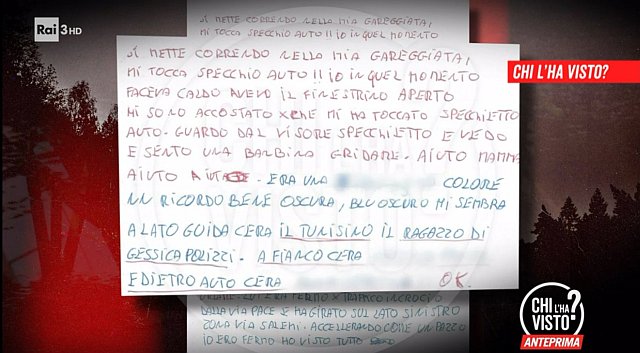 Rai 3HD
SI METTE CORRENDO NELLA MIA GAREGGIATAI,
MI TOCCA SPECCHIO AUTO !! IO IN QUEL MOMENTO
SI METTE CORRENDO NELLA MIA GAREGGIATAI,
MI TOCCA SPECCHIO AUTO !! IO IN QUEL MOMENTO
FACEVA CALDO AVEVO IL FINESTRINO APERTO
MI SONO ACCOSTATO XCHE MI HA TOCCATO SPECCHIETTO
AUTO - GUARDO DAL VISORE SPECCHIETTO E VEDO
E SENTO UNA BAMBINA GRIDARE - AIUTO MAMMA
AIUTO - ERA UNA COLORE
NN RICORDO BENE OSCURA, BLU OSCURO MI SEMBRA
A LATO GUIDA CERA IL TUNISINO IL RAGAZZO DI
GESSICA PULIZZI - A FIANCO CERA
E DIETRO AUTO CERA OK.
DALLA VIA PACE SE HA GIRATO SUL LATO SINISTRO
ZONA VIA SALEMI - ACCELLERANDO COME UN PAZZO
IO ERO FERMO HO VISTO TUTTO
CHI L'HA VISTO?
CHI L'HA
VISTO?
ANTEPRIMA